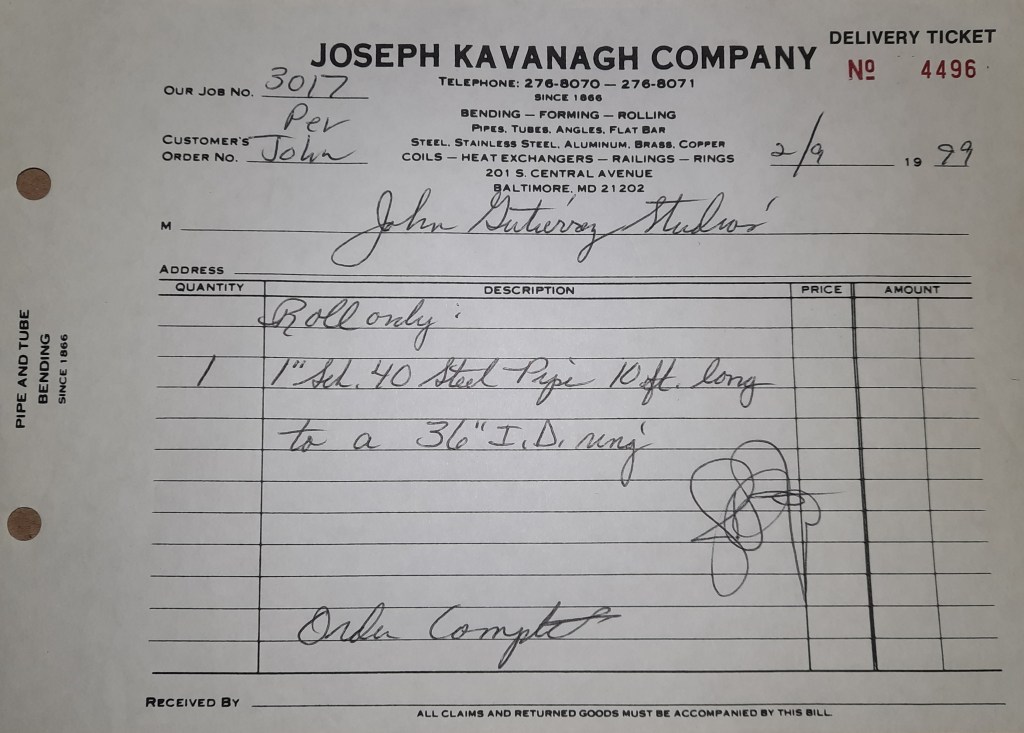 DELIVERY TICKET
JOSEPH KAVANAGH COMPANY
Nº 4496
TELEPHONE: 276-8070 — 276-8071
SINCE 1866
OUR JOB NO. 3017
BENDING — FORMING — ROLLING
PIPES, TUBES, ANGLES, FLAT BAR
Per
CUSTOMER'S
ORDER NO. John
STEEL, STAINLESS STEEL, ALUMINUM, BRASS, COPPER
COILS — HEAT EXCHANGERS — RAILINGS — RINGS
2/9 19 99
201 S. CENTRAL AVENUE
BALTIMORE, MD 21202
M John Gutierrez Studios
ADDRESS
QUANTITY DESCRIPTION PRICE AMOUNT
Roll only :
1 1" Sch. 40 Steel Pipe 10 ft. long
to a 36" I.D. ring
Order Complete
RECEIVED BY
ALL CLAIMS AND RETURNED GOODS MUST BE ACCOMPANIED BY THIS BILL.
PIPE AND TUBE
BENDING
SINCE 1866